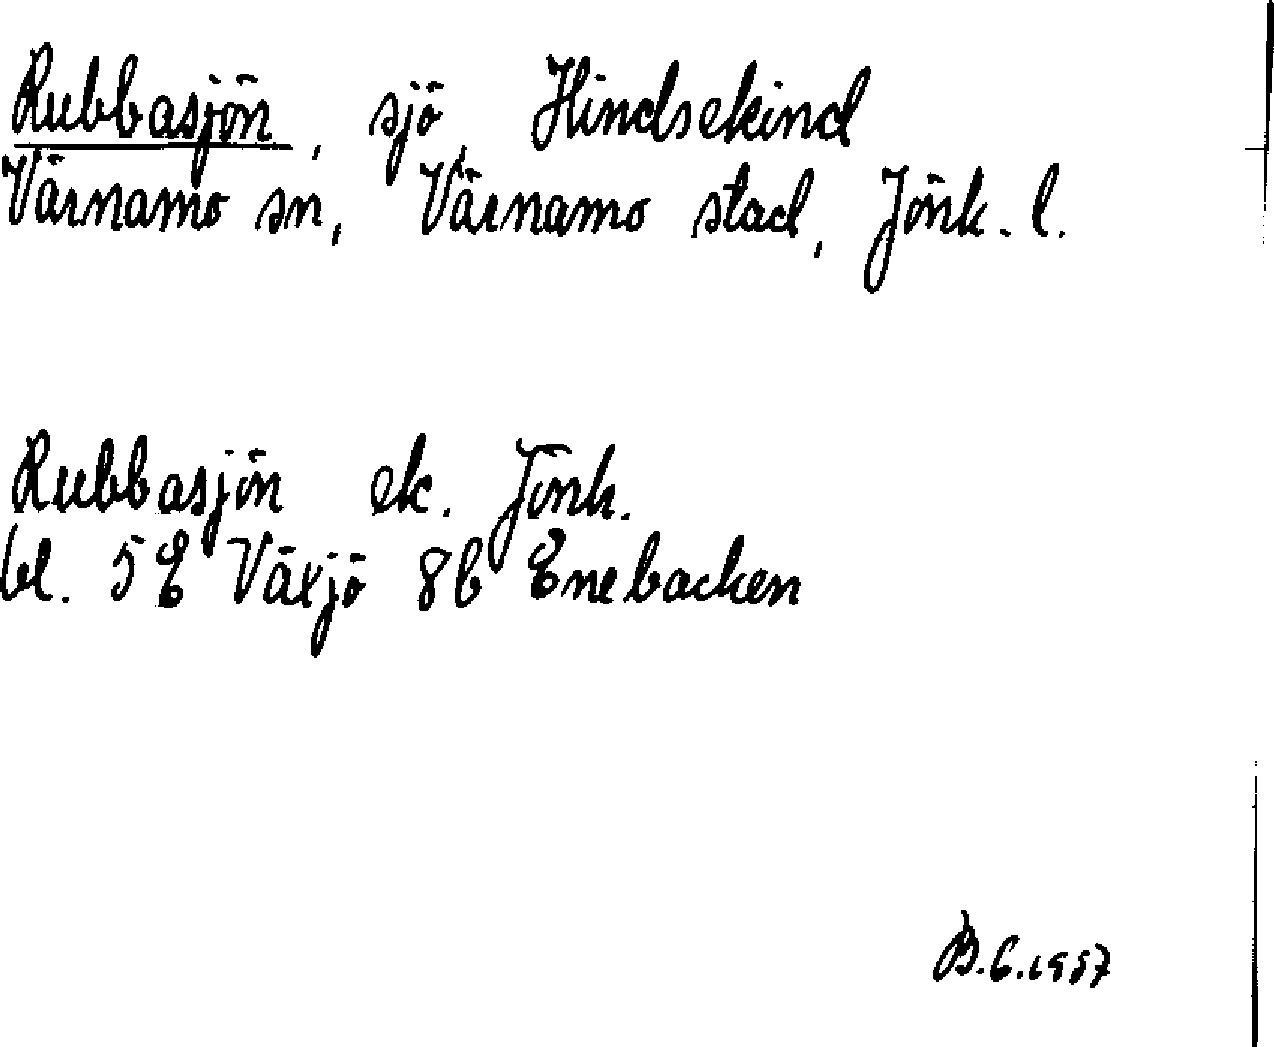 Rubbasjön, sjö, Hindsekind
Värnamo sn, Värnamo stad, Jönk. l.
Rubbasjön ek. Jönk.
bl. 5E Växjö 8b Enebacken
B.C.1957